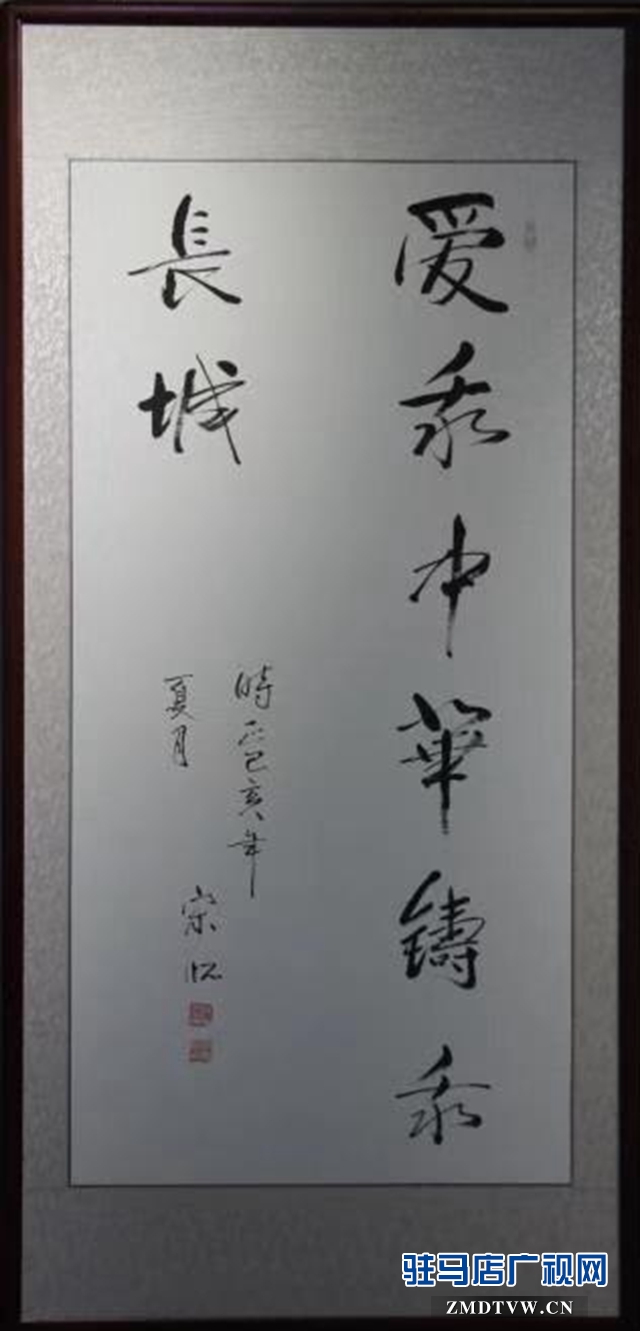 爱我中華鑄我
長城
時己亥年
夏月
宋
驻马店广视网
ZMDTVW.CN